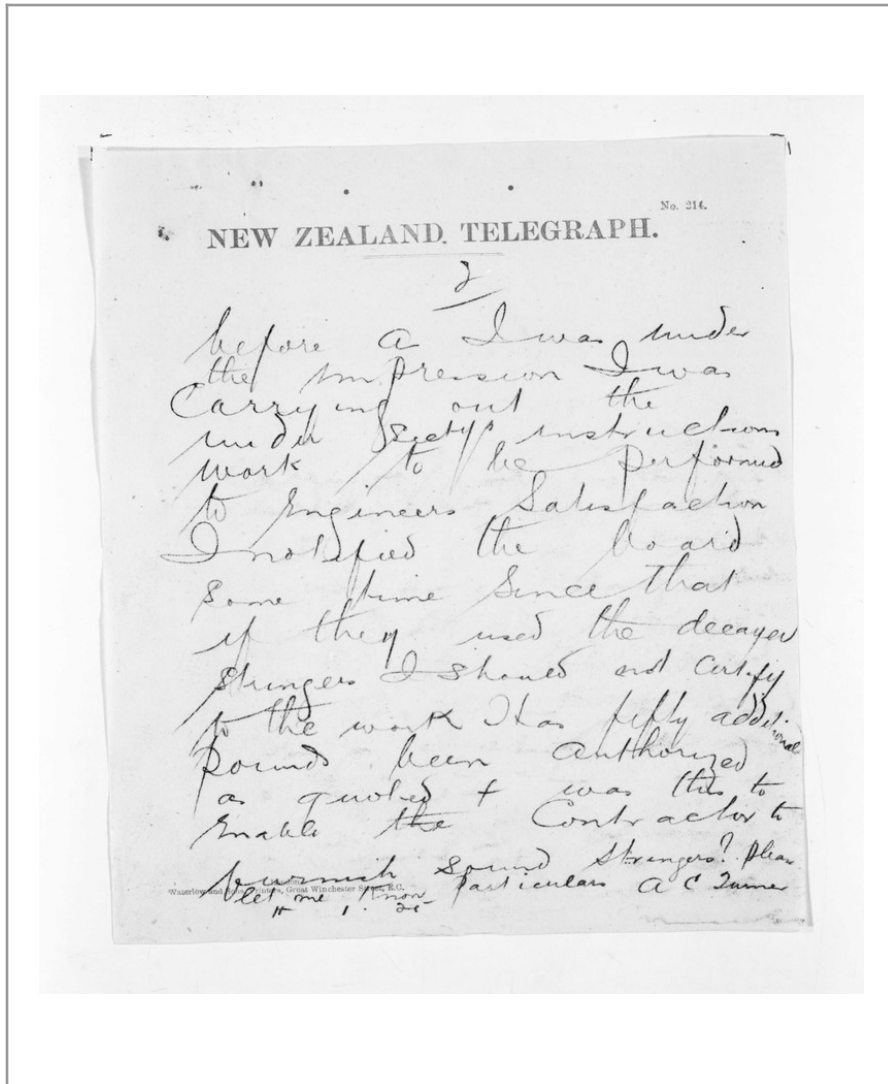 No. 214.
NEW ZEALAND. TELEGRAPH.
2
before a I was under
the impression I was
Carrying out the
under Secty's instructions
work to be performed
to Engineers Satisfaction
I notified the board
some time since that
if they used the decayed
stringers I should not certify
to the work Has fifty additional
pounds been authorized
as quoted + was this to
enable the Contractor to
furnish sound stringers? Please
Waterlow and Sons, Printers, Great Winchester Street, E.C.
let me know particulars A C Turner